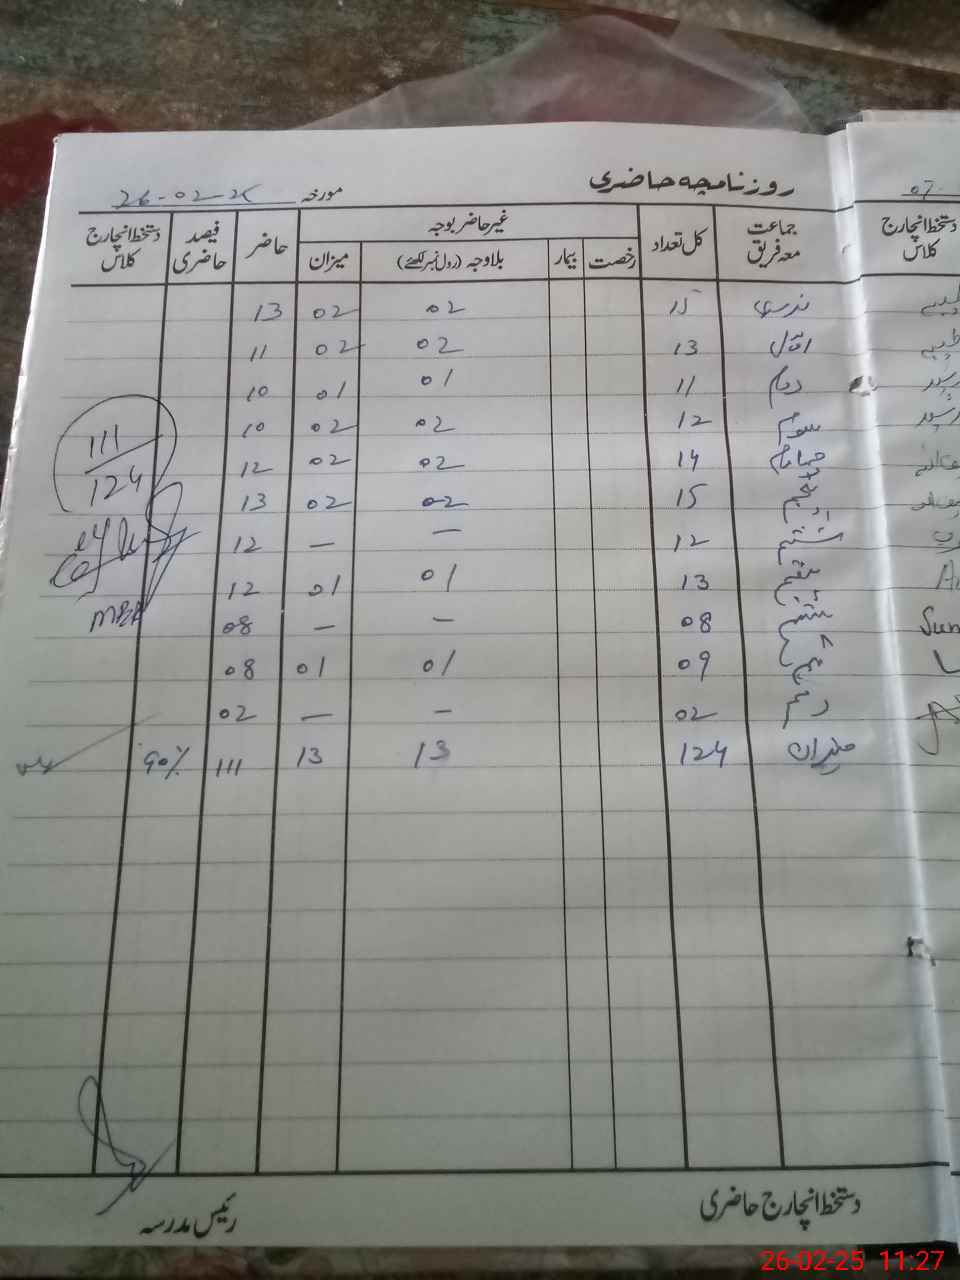 روزنامچہ حاضری
مورخہ 26-02-25
جماعت معہ فریق کل تعداد غیر حاضر بوجہ حاضر فیصد حاضری دستخط انچارج کلاس
رخصت بیمار بلاوجہ (رول نمبر لکھئے) میزان
نرسری 15 02 02 13
اوّل 13 02 02 11
دوم 11 01 01 10
سوم 12 02 02 10
چہارم 14 02 02 12
پنجم 15 02 02 13
ششم 12 — — 12
ہفتم 13 01 01 12
ہشتم 08 — — 08
نہم 09 01 01 08
دہم 02 — — 02
میزان 124 13 13 111 90%
111
124
دستخط انچارج حاضری
رئیس مدرسہ
دستخط انچارج کلاس
26-02-25 11:27